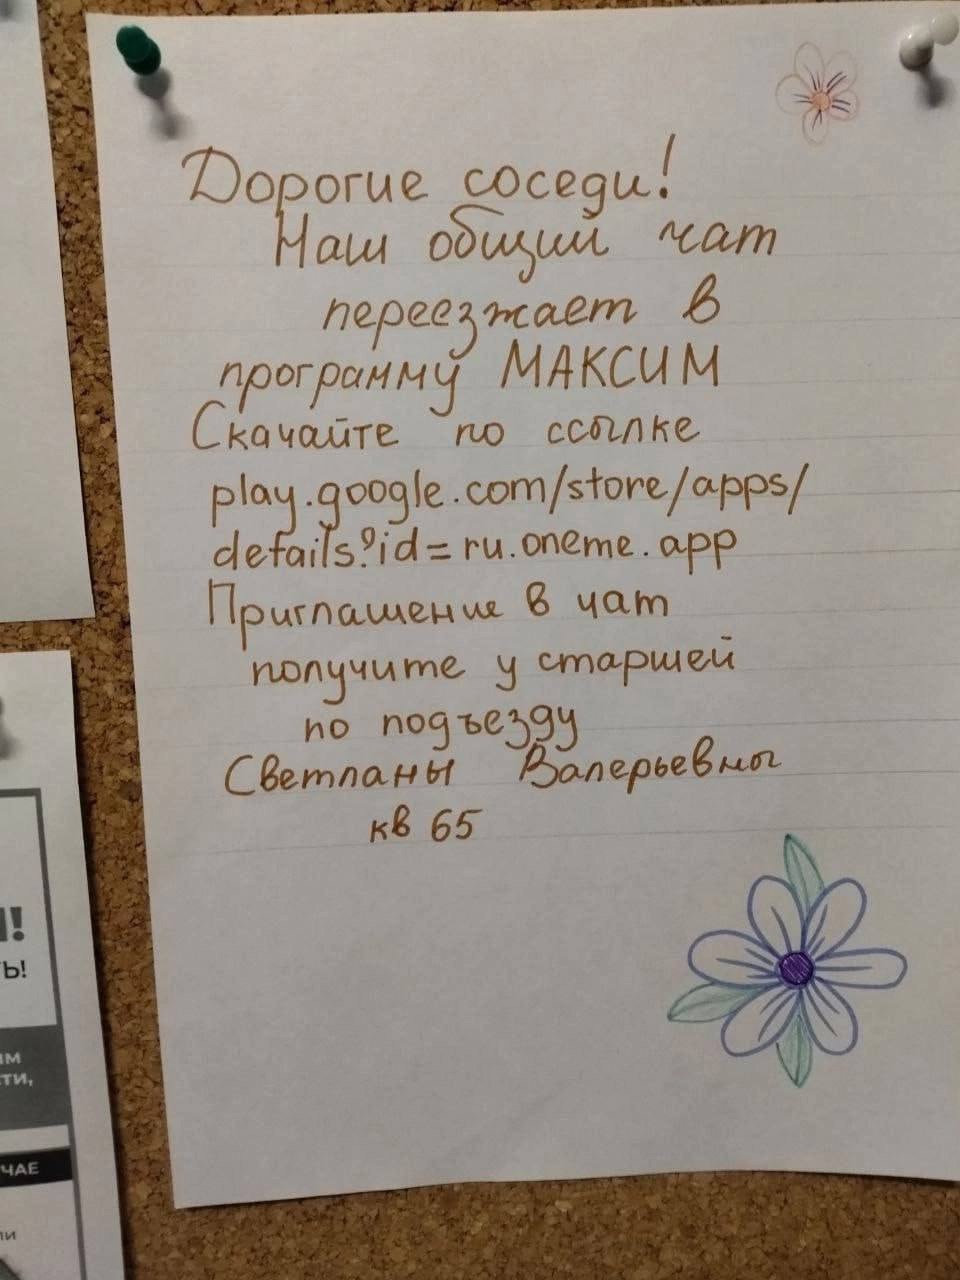 Дорогие соседи!
Наш общий чат
переезжает в
программу МАКСИМ
Скачайте по ссылке
play.google.com/store/apps/
details?id=ru.oneme.app
Приглашение в чат
получите у старшей
по подъезду
Светланы Валерьевны
кв 65
ТЬ!
ТИ,
ЧАЕ